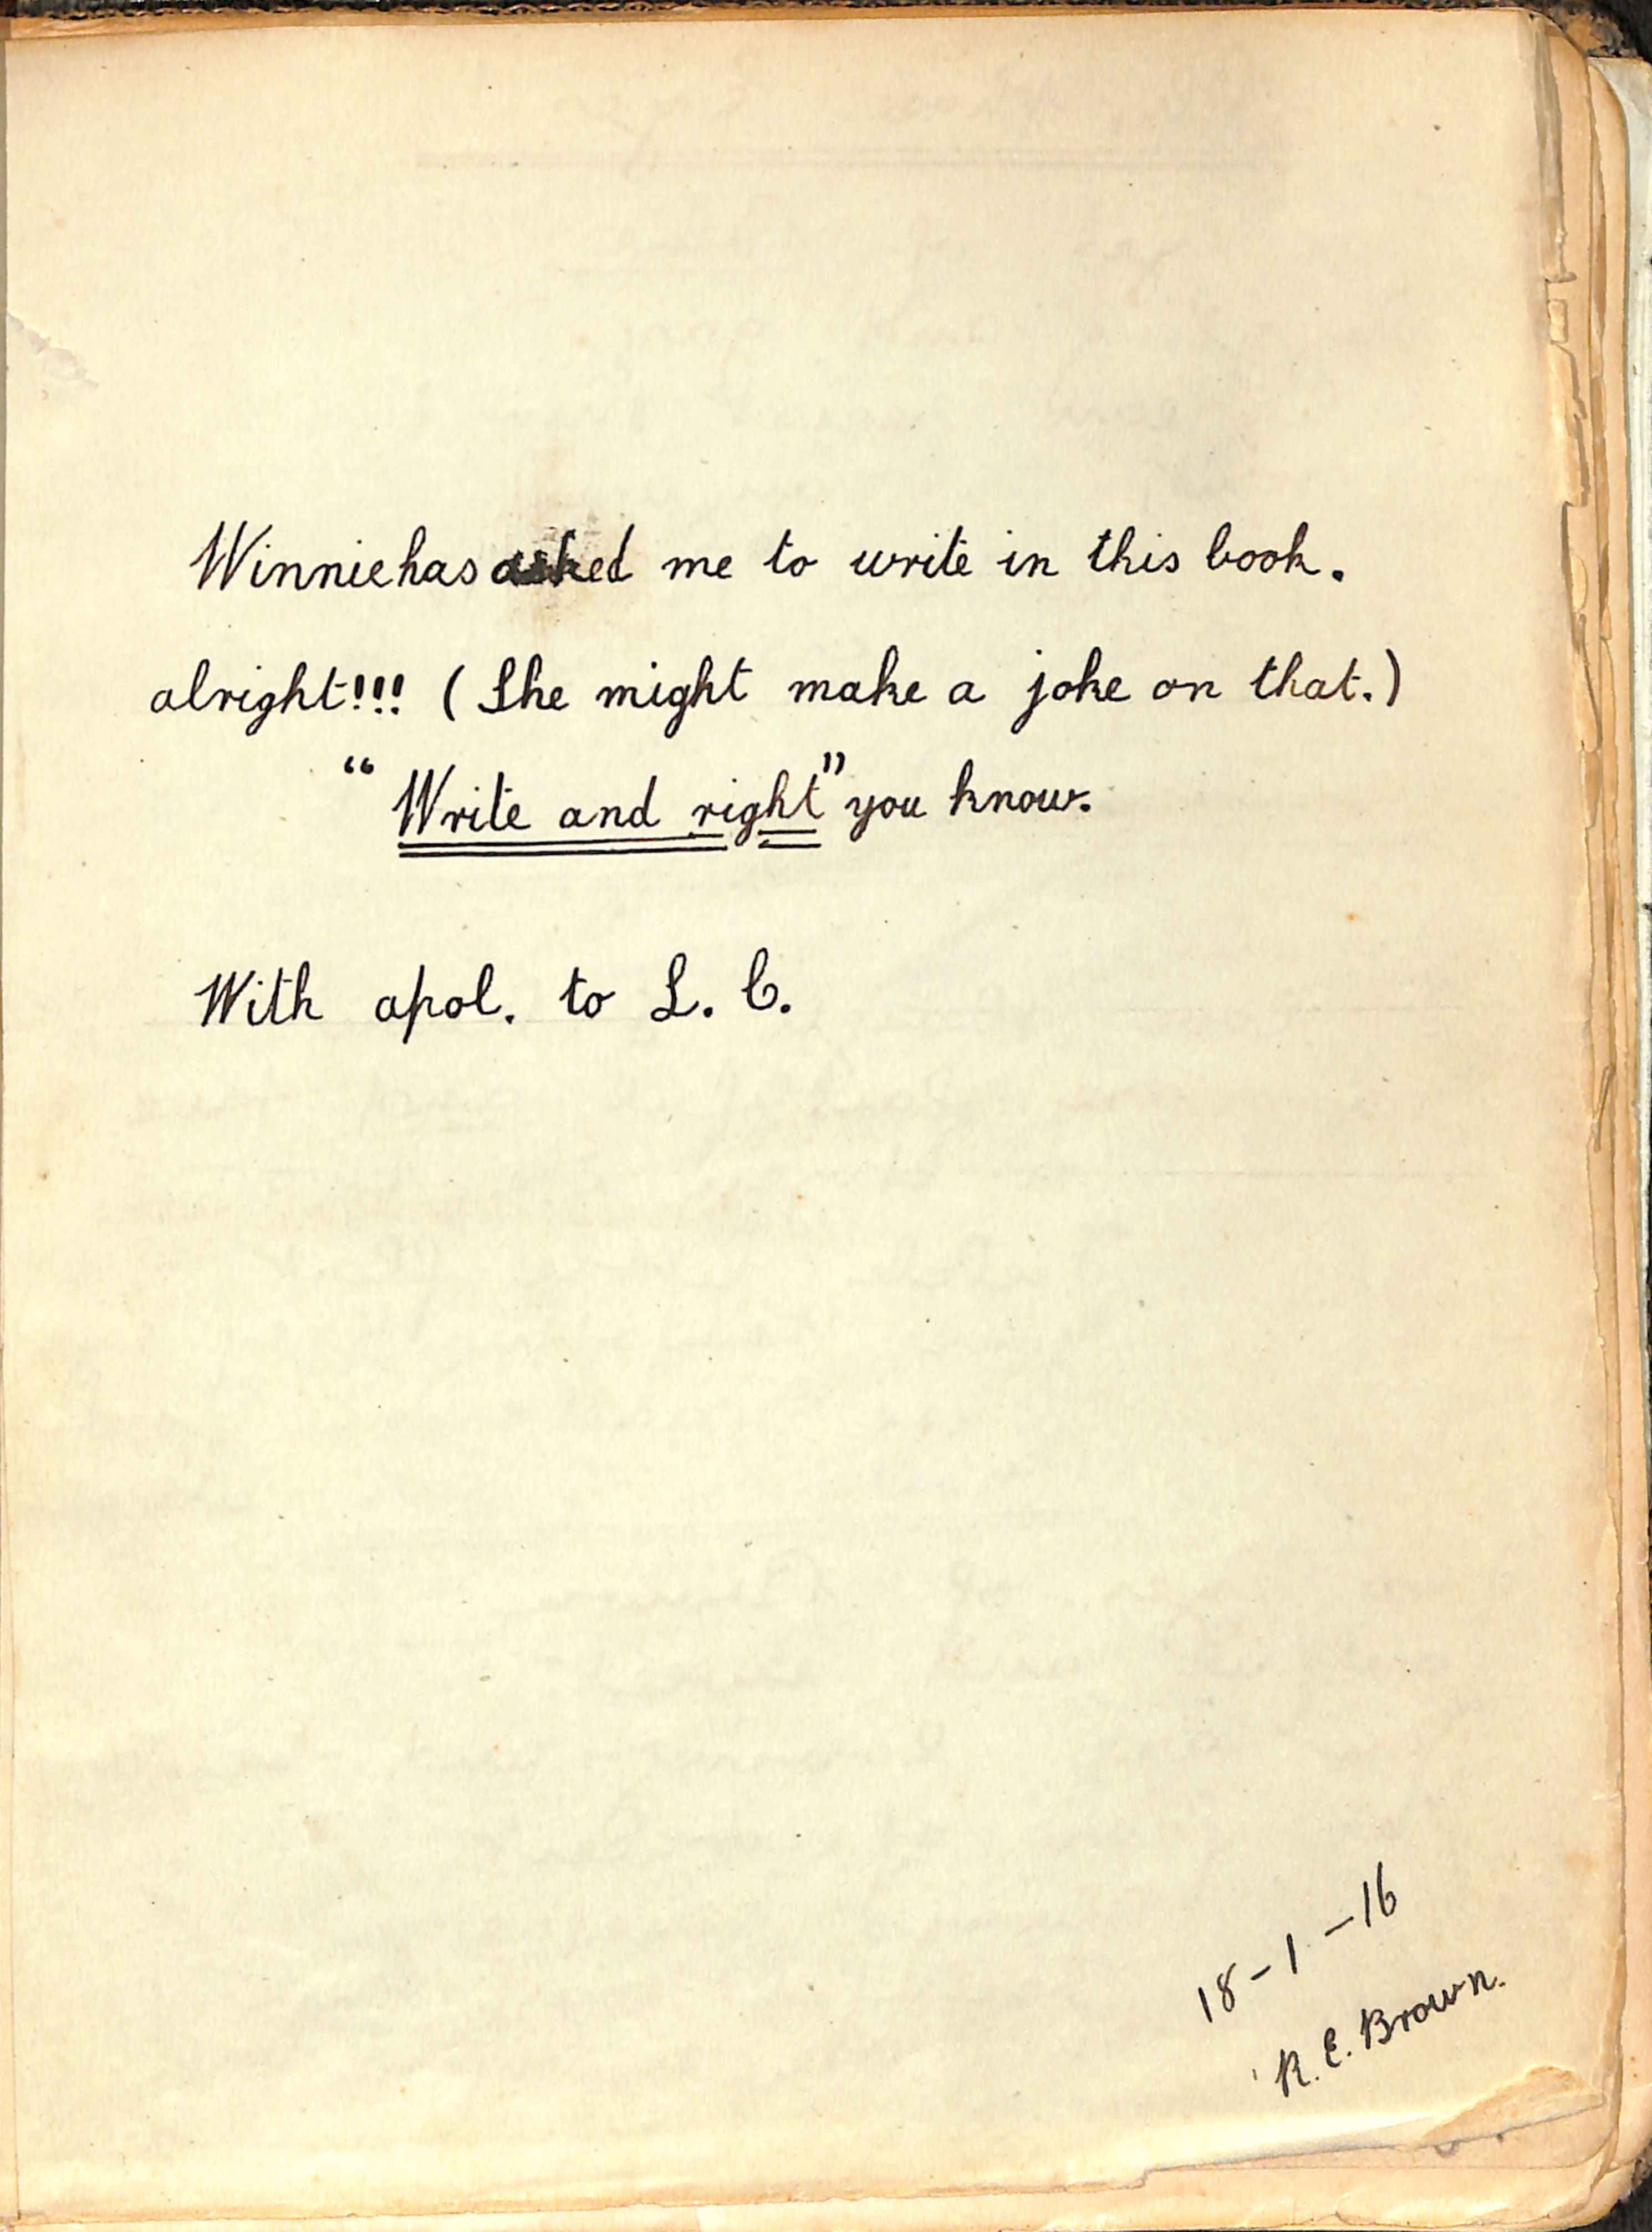 Winnie has asked me to write in this book.
alright!!! (She might make a joke on that.)
"Write and right" you know.
With apol. to L. C.
18-1-16
R. E. Brown.